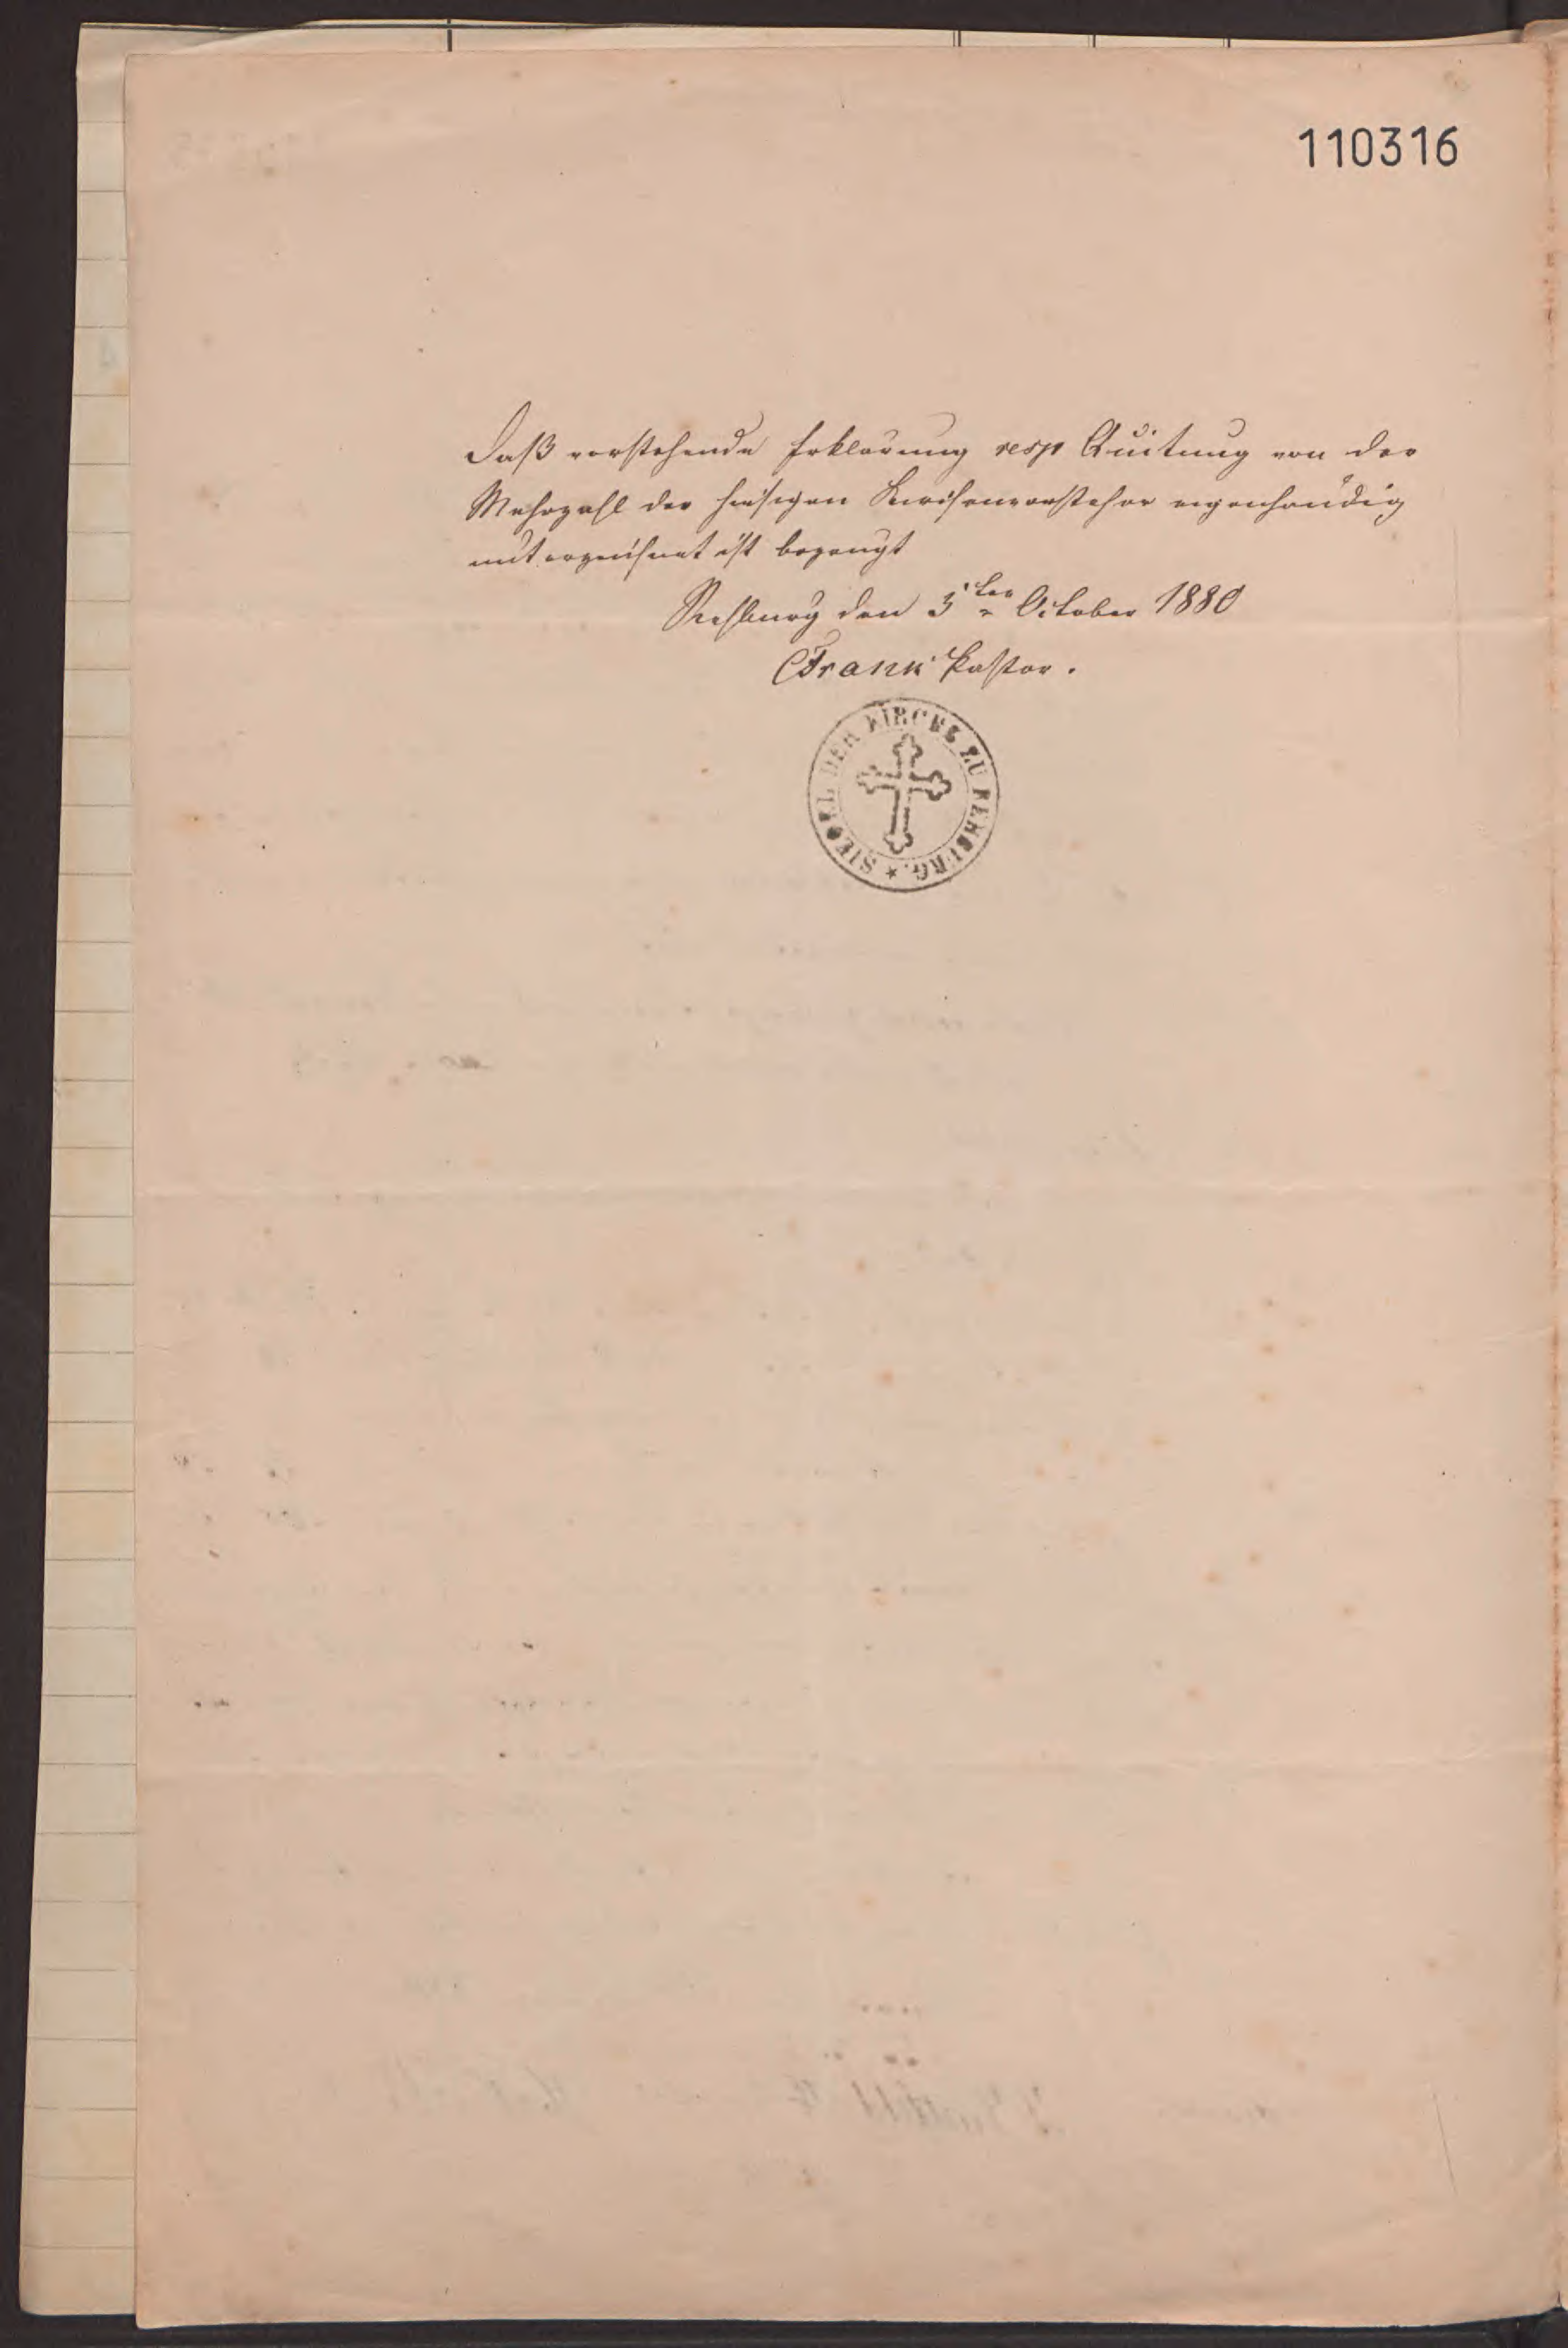 110316
Daß vorstehende Erklärung resp Quitung von der
Mehrzahl der hiesigen Kirchenvorsteher eigenhändig
unterzeichnet ist bezeugt
Rehburg den 5ten October 1880
Frank Pastor.
SIEGEL DER KIRCHE ZU REHBURG. *